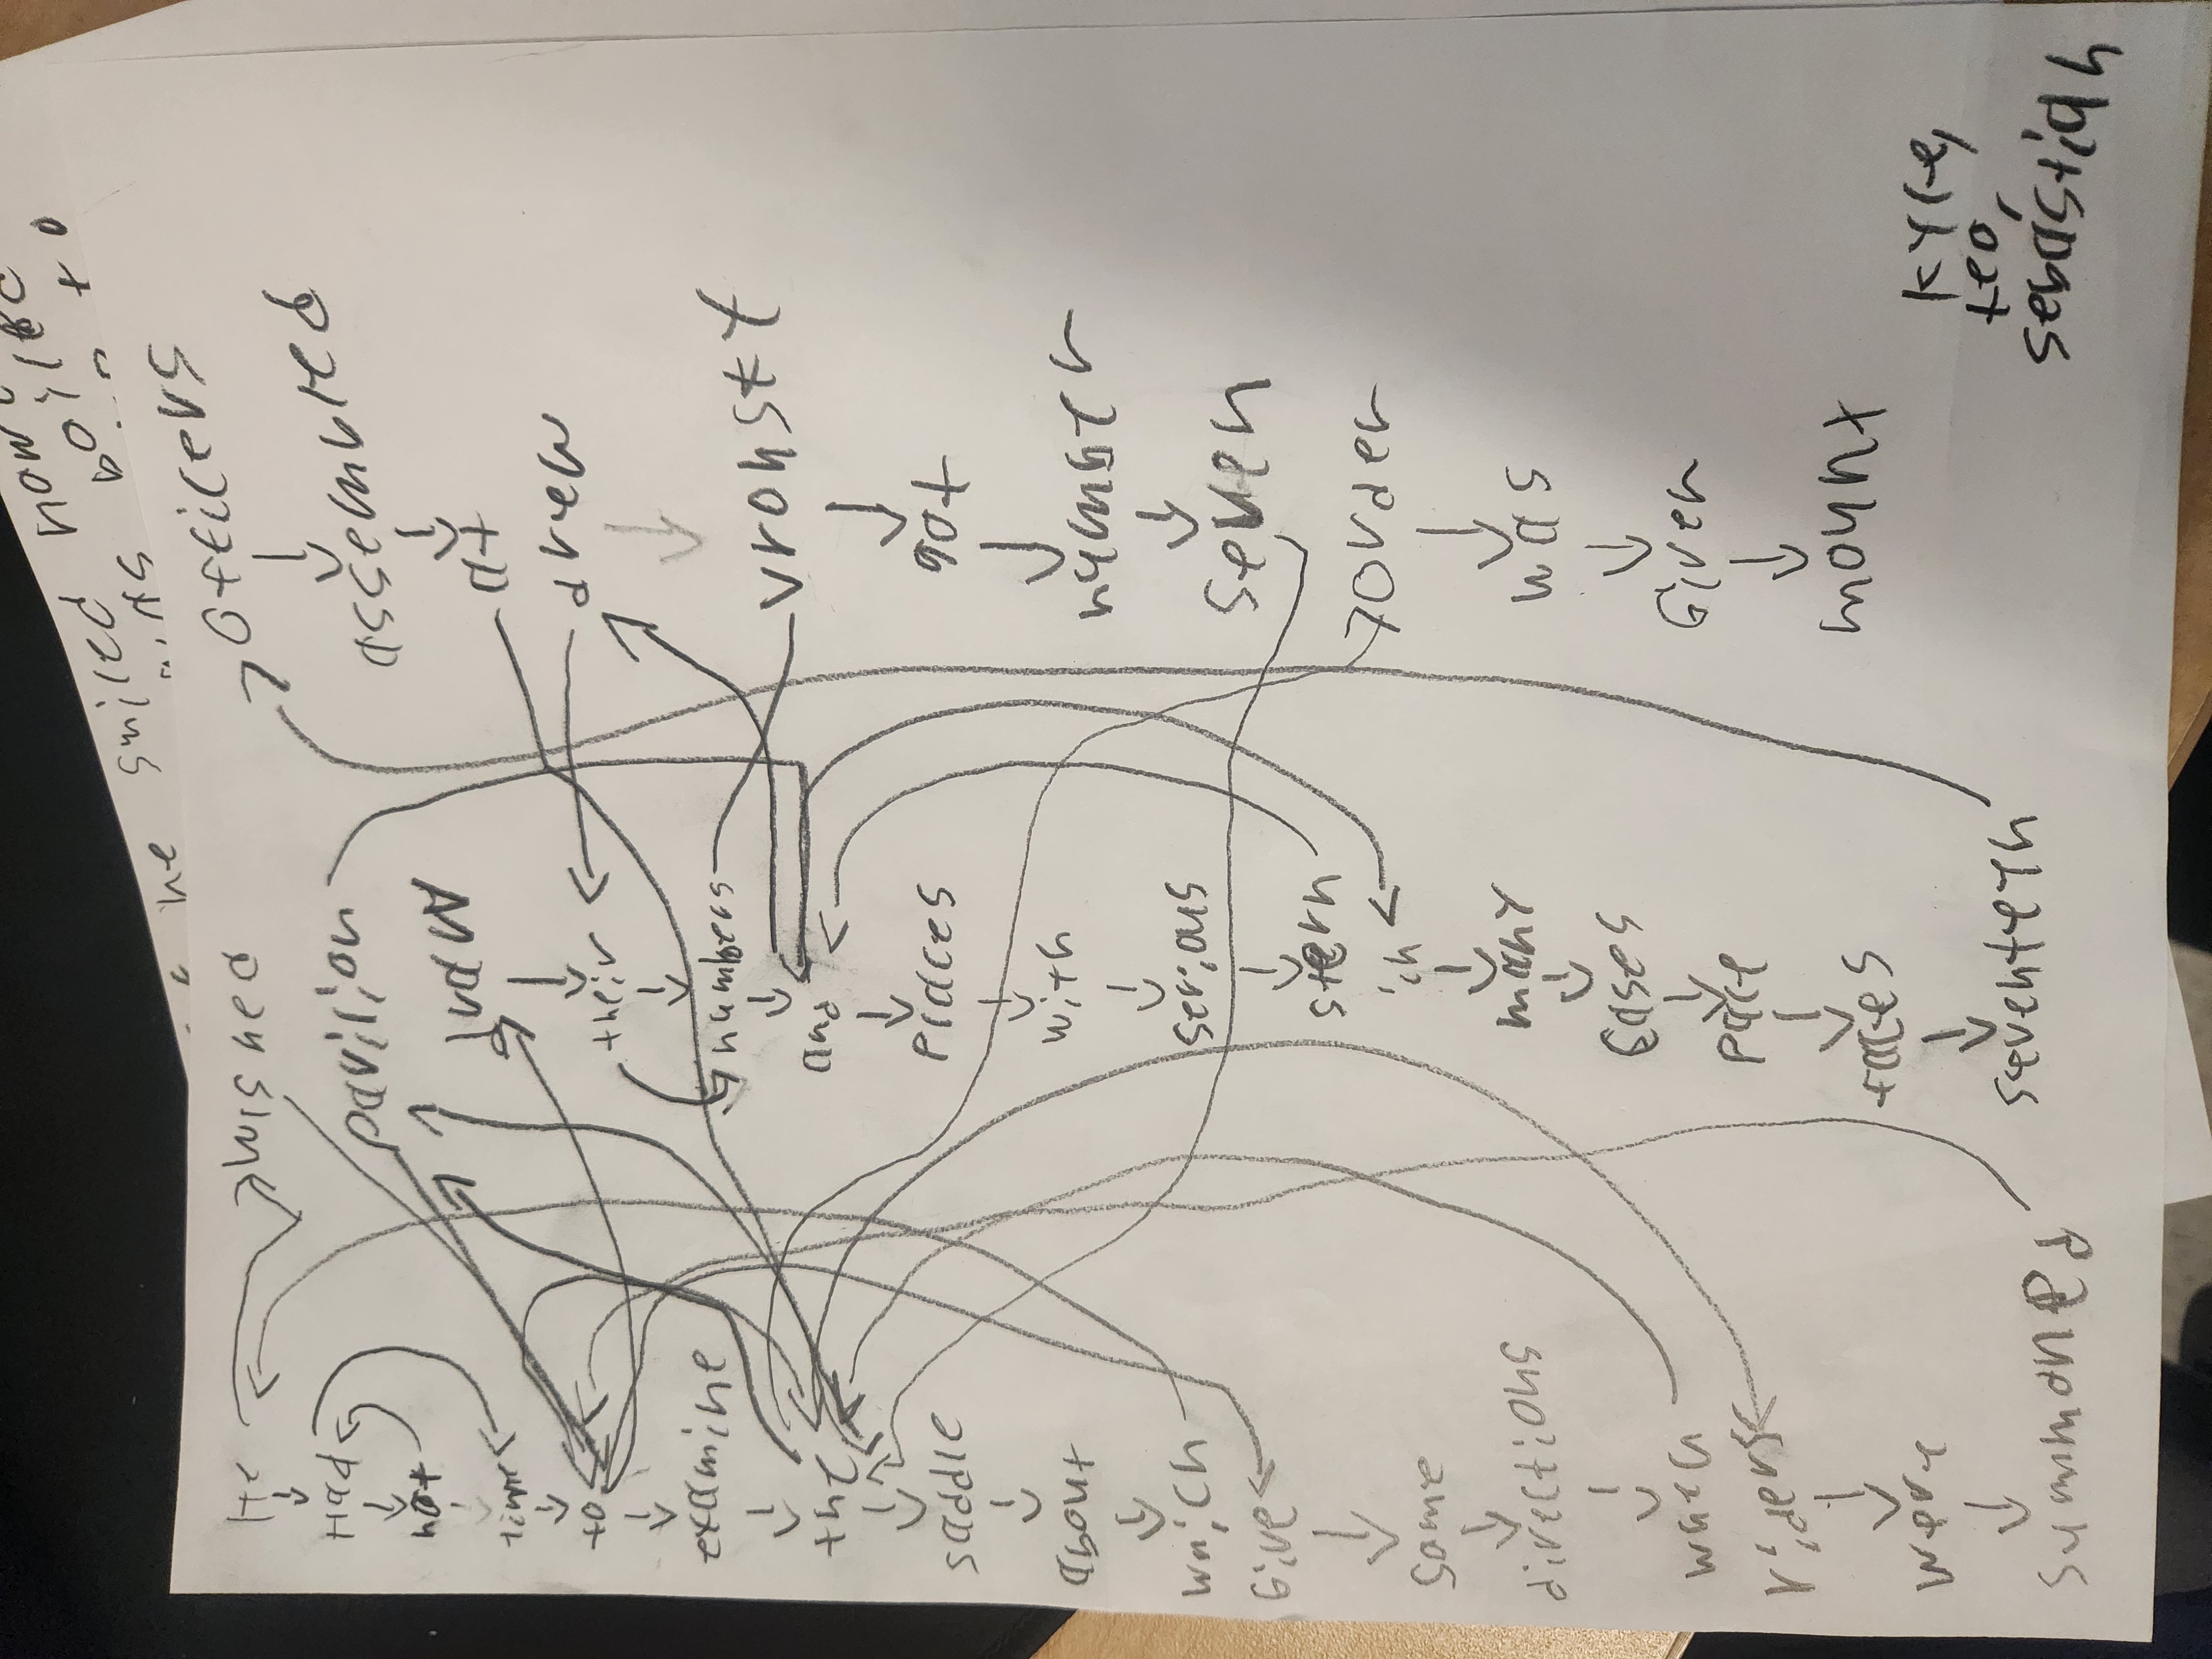 he smiled how
boiled
to
He
Had
not
time
to
examine
the
saddle
about
which
Give
some
directions
when
riders
were
summoned
wished
pavilion
draw
their
numbers
and
places
with
serious
stern
in
many
Cases
pale
faces
seventeen
Officers
assembled
at
drew
vronsky
got
number
seven
order
was
Given
mount
Kyle,
teo,
sebastian